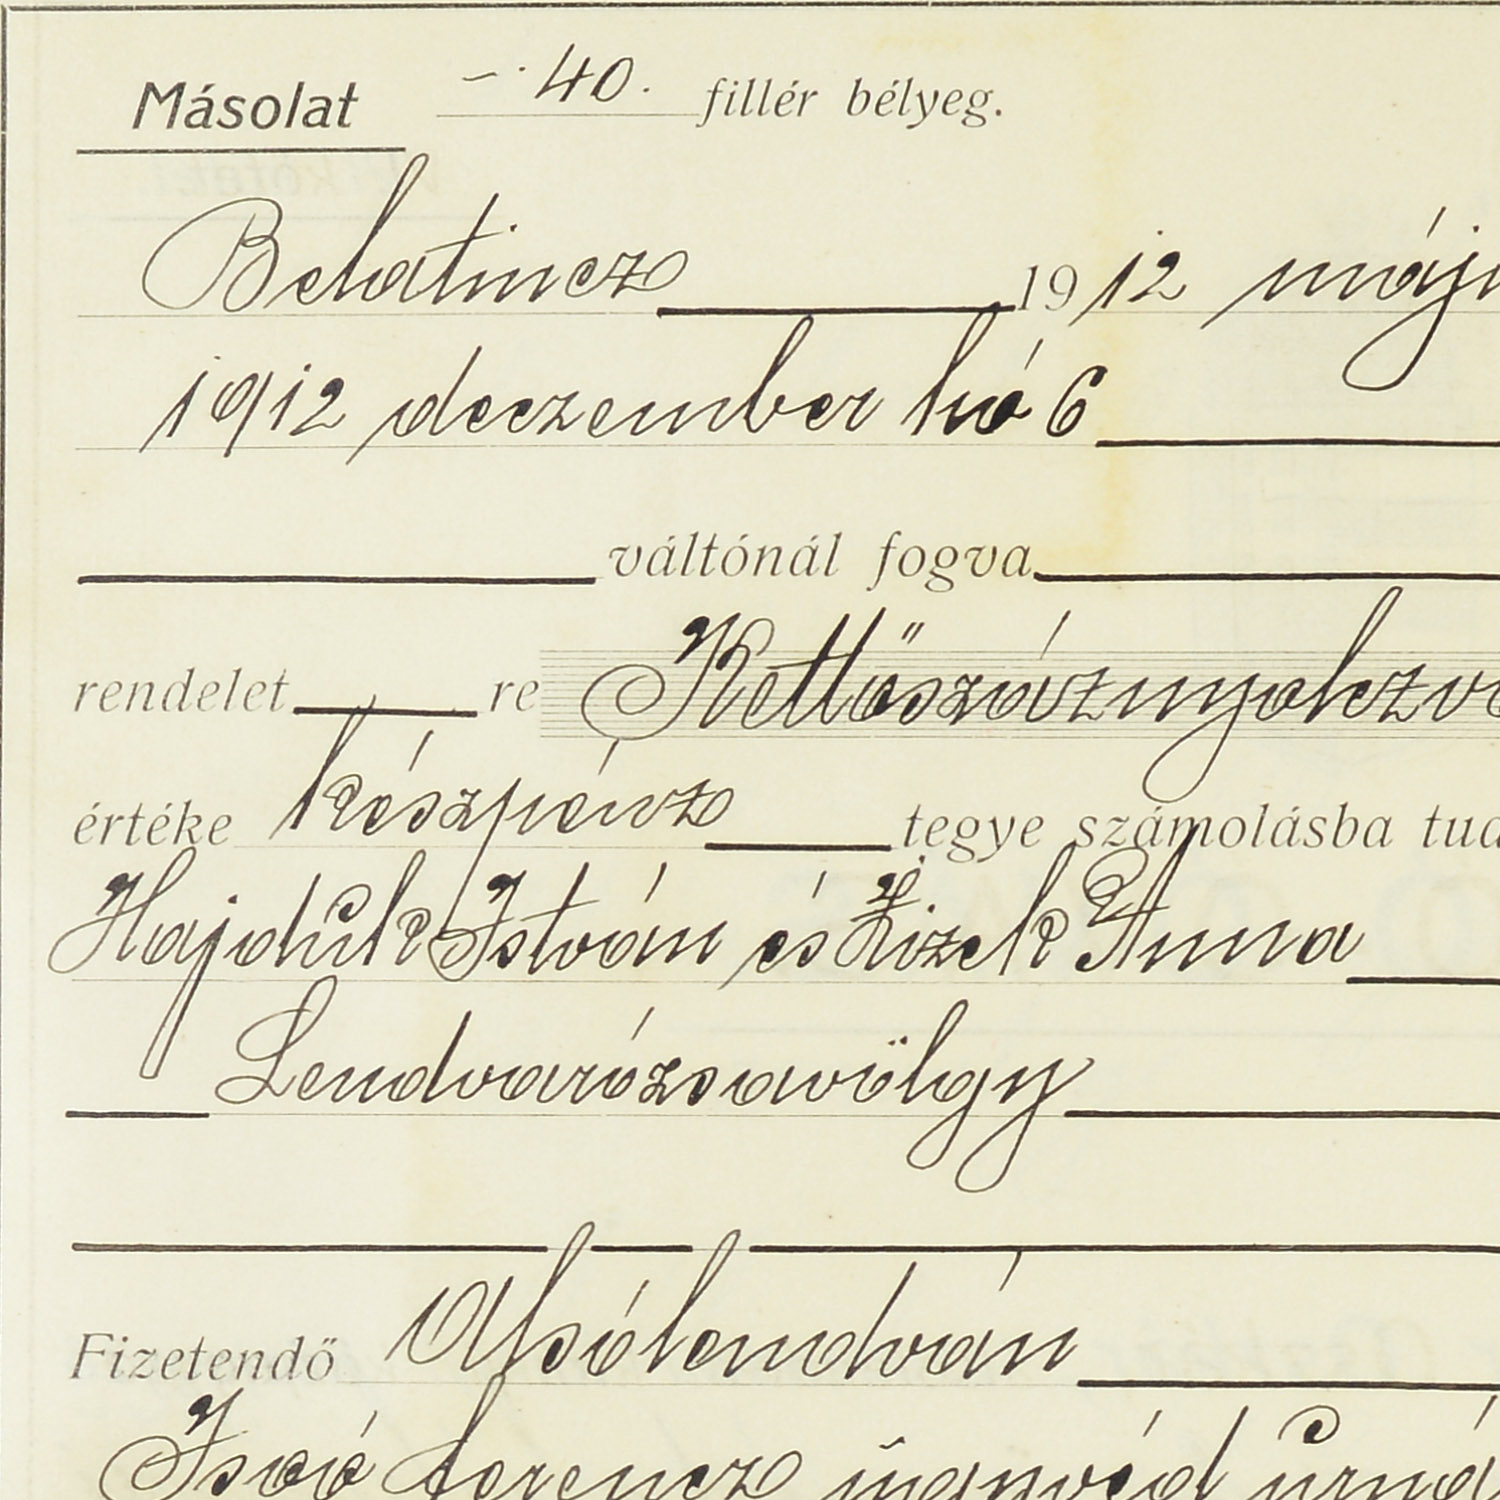 Másolat –·40. fillér bélyeg.
Belatincz 1912 máju
1912 deczember hó 6
váltónál fogva
rendelet re Kettőszáznyolczva
értéke készpénz tegye számolásba tud
Hajduk István és Zizek Anna
Lendvarózsavölgy
Fizetendő Alsólendván
Isoó Ferencz ügyvéd urná